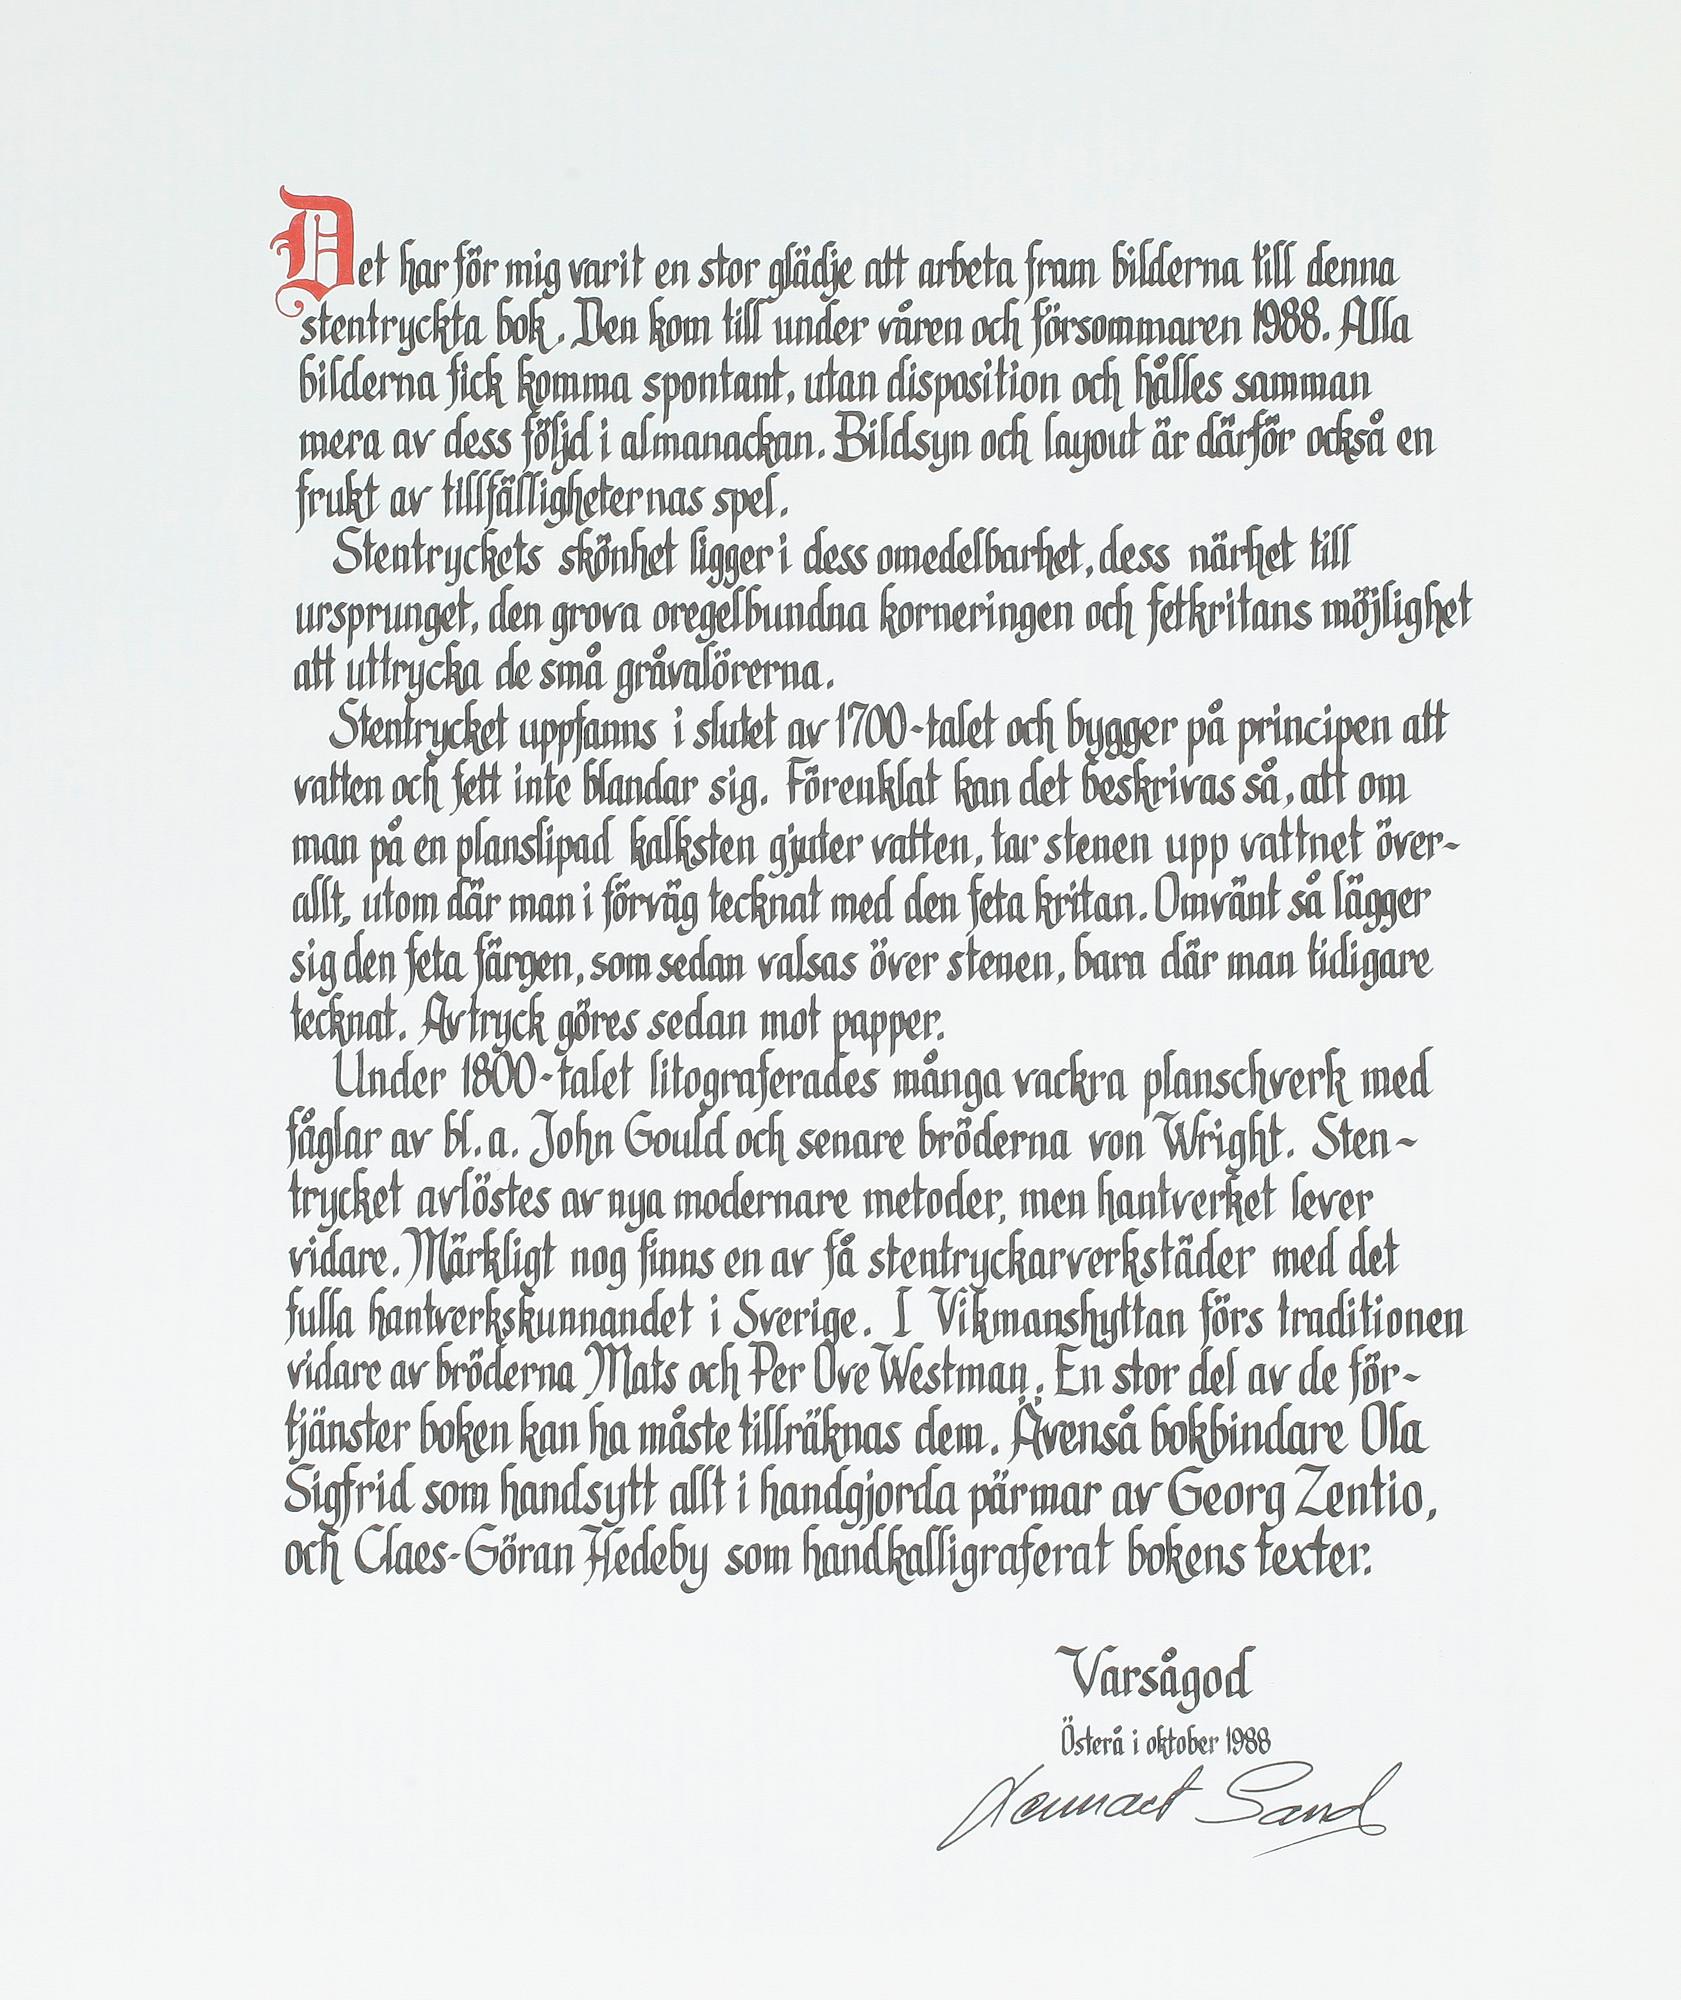 Det har för mig varit en stor glädje att arbeta fram bilderna till denna
stentryckta bok. Den kom till under våren och försommaren 1988. Alla
bilderna fick komma spontant, utan disposition och hålles samman
mera av dess följd i almanackan. Bildsyn och layout är därför också en
frukt av tillfälligheternas spel.
Stentryckets skönhet ligger i dess omedelbarhet, dess närhet till
ursprunget, den grova oregelbundna korneringen och fetkritans möjlighet
att uttrycka de små gråvalörerna.
Stentrycket uppfanns i slutet av 1700-talet och bygger på principen att
vatten och fett inte blandar sig. Förenklat kan det beskrivas så, att om
man på en planslipad kalksten gjuter vatten, tar stenen upp vattnet över-
allt, utom där man i förväg tecknat med den feta kritan. Omvänt så lägger
sig den feta färgen, som sedan valsas över stenen, bara där man tidigare
tecknat. Avtryck göres sedan mot papper.
Under 1800-talet litograferades många vackra planschverk med
fåglar av bl. a. John Gould och senare bröderna von Wright. Sten-
trycket avlöstes av nya modernare metoder, men hantverket lever
vidare. Märkligt nog finns en av få stentryckarverkstäder med det
fulla hantverkskunnandet i Sverige. I Vikmanshyttan förs traditionen
vidare av bröderna Mats och Per Ove Westman. En stor del av de för-
tjänster boken kan ha måste tillräknas dem. Ävenså bokbindare Ola
Sigfrid som handsytt allt i handgjorda pärmar av Georg Zentio,
och Claes-Göran Hedeby som handkalligraferat bokens texter.
Varsågod
Österå i oktober 1988
Lennart Sand